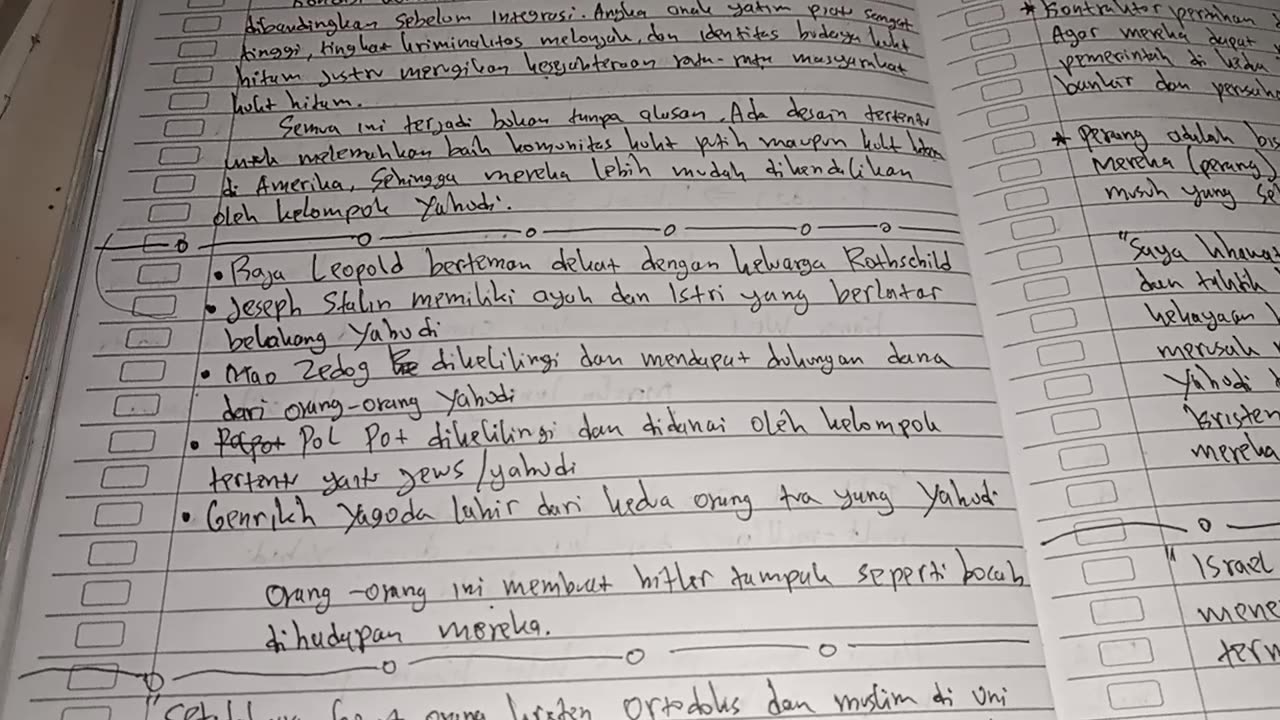 dibandingkan sebelum Integrasi. Angka anak yatim piatu sangat
tinggi, tingkat kriminalitas melonjak, dan identitas budaya kulit
hitam justru merugikan kesejahteraan rata-rata masyarakat
kulit hitam.
Semua ini terjadi bukan tanpa alasan. Ada desain tertentu
untuk melemahkan baik komunitas kulit putih maupun kulit hitam
di Amerika, Sehingga mereka lebih mudah dikendalikan
oleh kelompok Yahudi.
• Raja Leopold berteman dekat dengan keluarga Rothschild
• Jeseph Stalin memiliki ayah dan Istri yang berlatar
belakang Yahudi
• Mao Zedog dikelilingi dan mendapat dukungan dana
dari orang-orang Yahudi
• Pol Pot dikelilingi dan didanai oleh kelompok
tertentu yaitu jews/yahudi
• Genrikh Yagoda lahir dari kedua orang tua yang Yahudi
Orang-orang ini membuat hitler tampak seperti bocah
dihadapan mereka.
orang kristen ortodoks dan muslim di uni
* Kontraktor
Agar mereka dapat
pemerintah di
bankir dan
* perang adalah
Mereka (perang)
musuh yang
"Saya
dan
kekayaan
merusak
Yahudi
kristen
mereka
" Israel